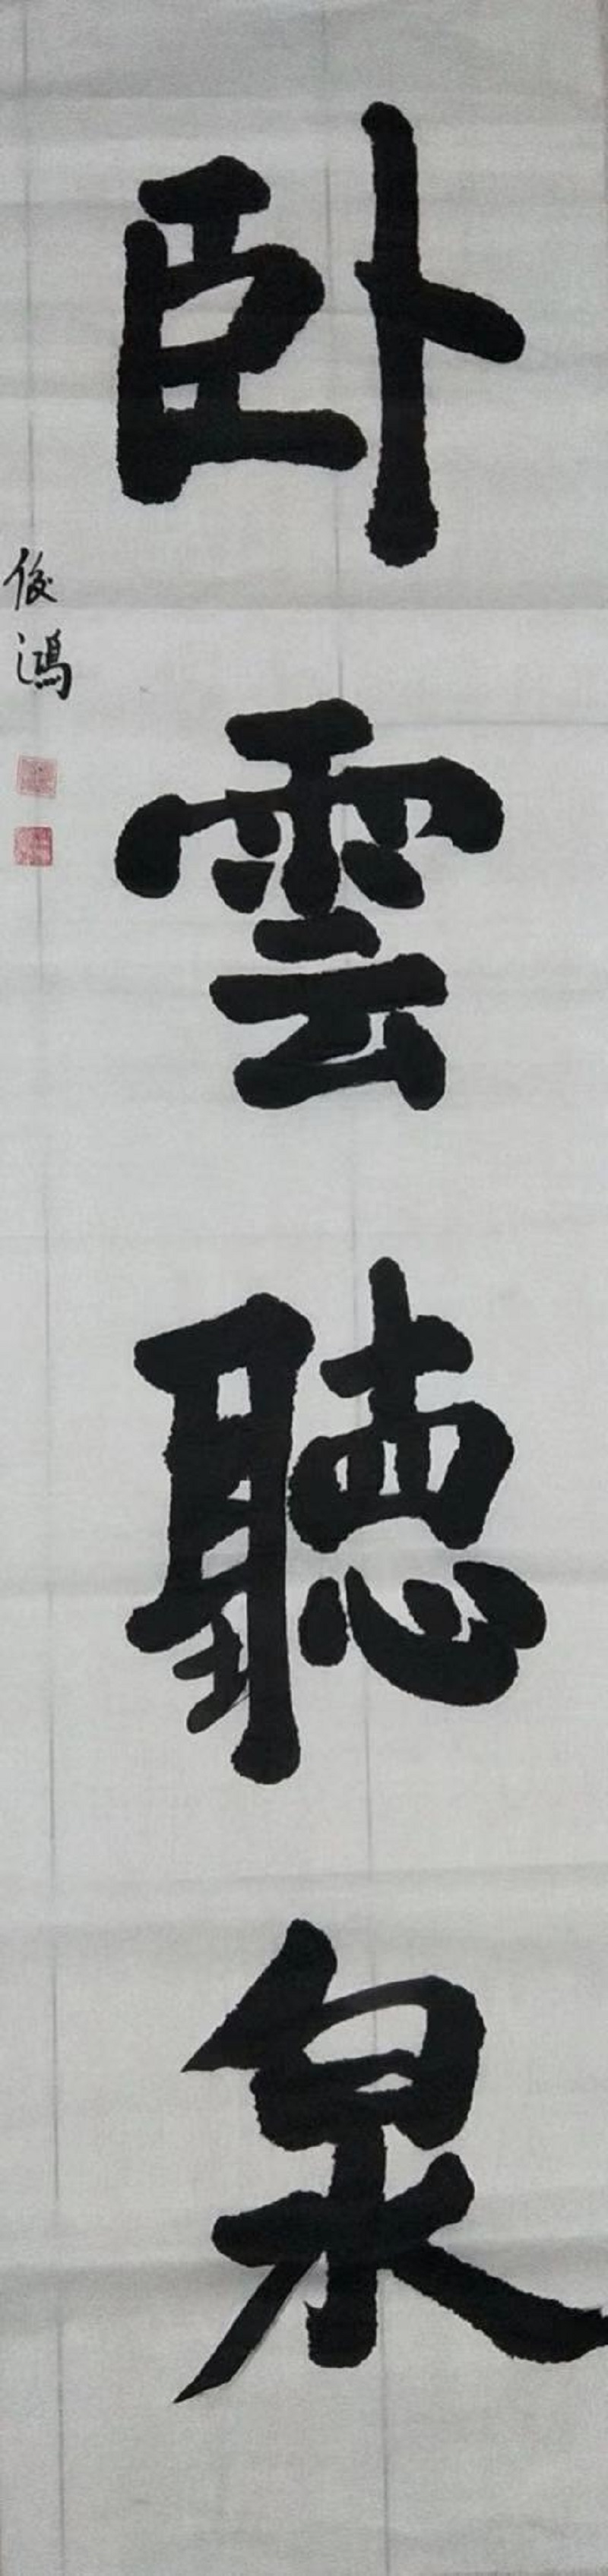 卧雲聽泉
俊鴻